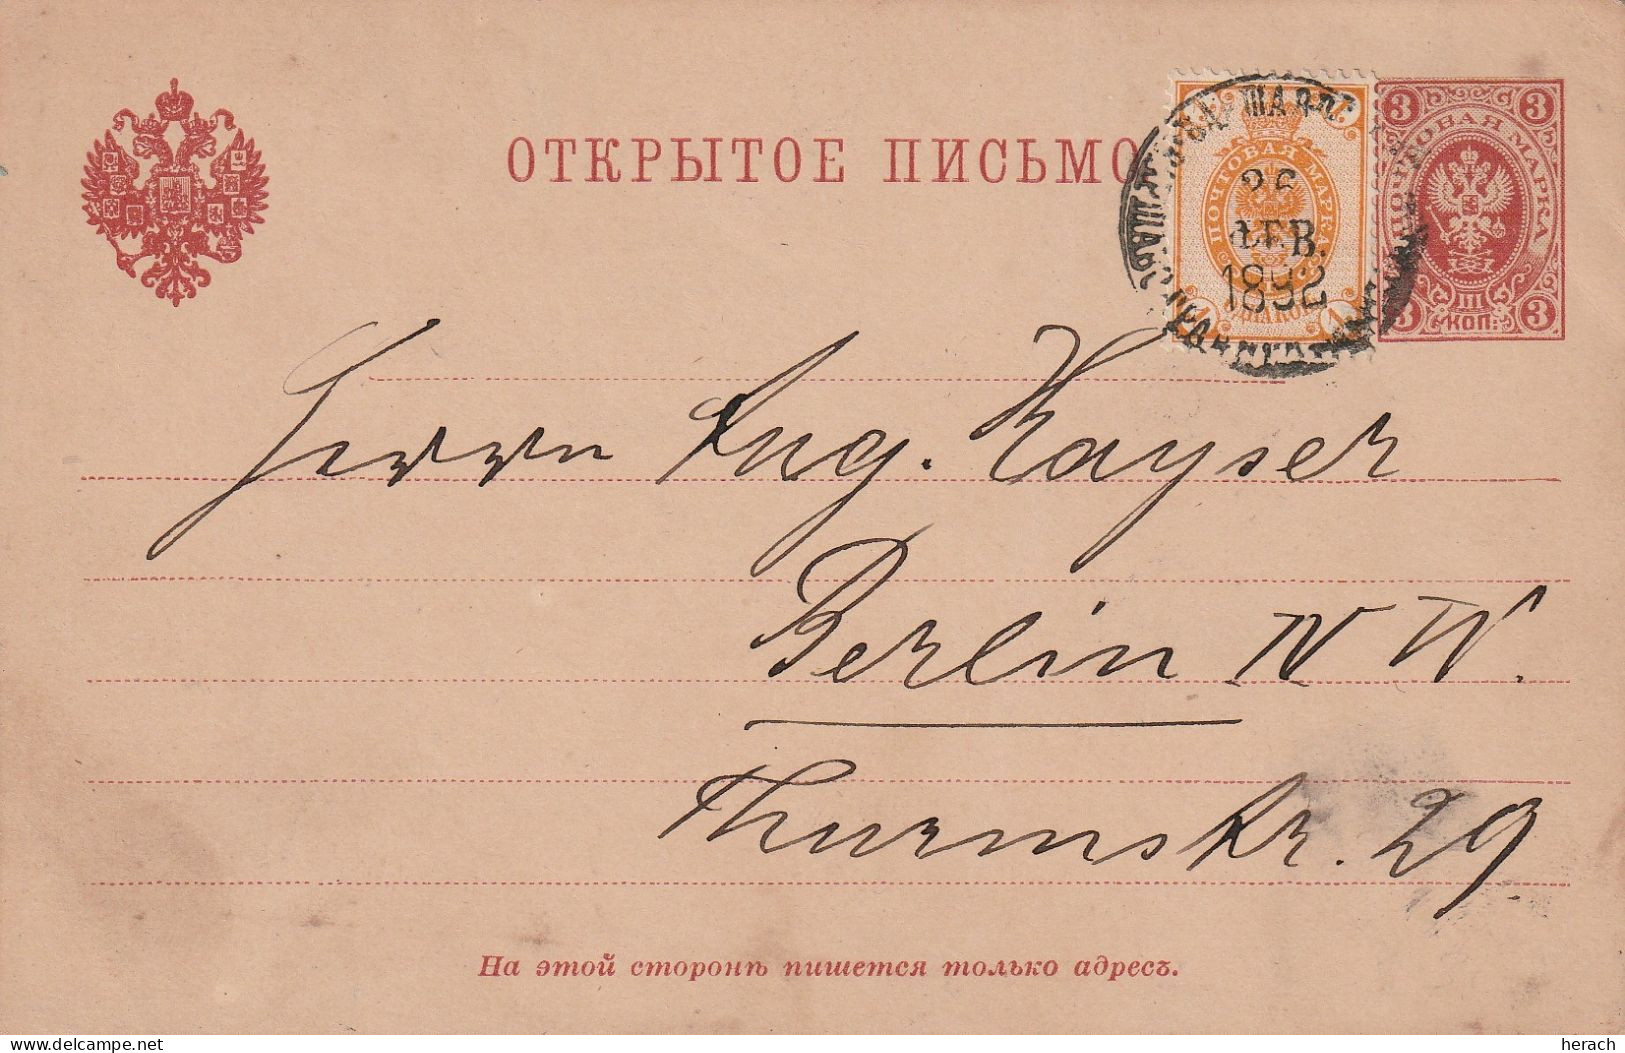 ОТКРЫТОЕ ПИСЬМО
ПОЧТОВАЯ МАРКА
1
1
26
ФЕВ.
1892
ПОЧТОВАЯ МАРКА
3
3
III
3 КОП: 3
Herrn Aug. Kayser
Berlin N W.
Thurmstr. 29.
На этой сторонѣ пишется только адресъ.
delcampe.net
herach